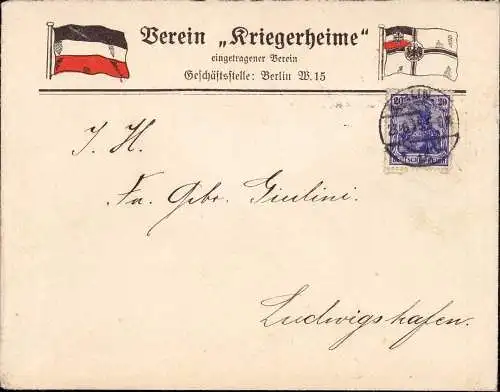 Verein „Kriegerheime"
eingetragener Verein
Geschäftsstelle: Berlin W. 15
BERLIN
20 20
DEUTSCHES REICH
J. H.
Fa. Gebr. Giulini.
Ludwigshafen.